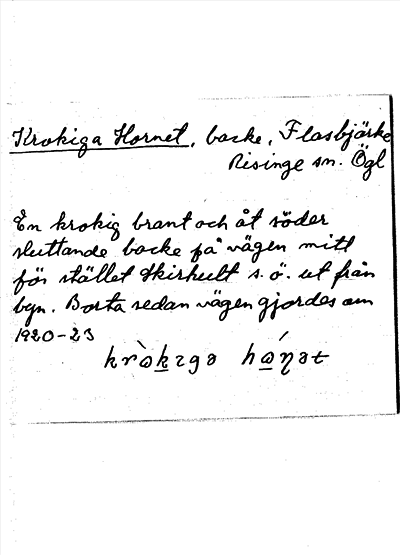 Krokiga Hornet, backe, Flasbjärke
Risinge sn. Ögl
En krokig brant och åt söder
sluttande backe på vägen mitt
för stället Skirhult s. ö. ut från
byn. Borta sedan vägen gjordes om
1920-23